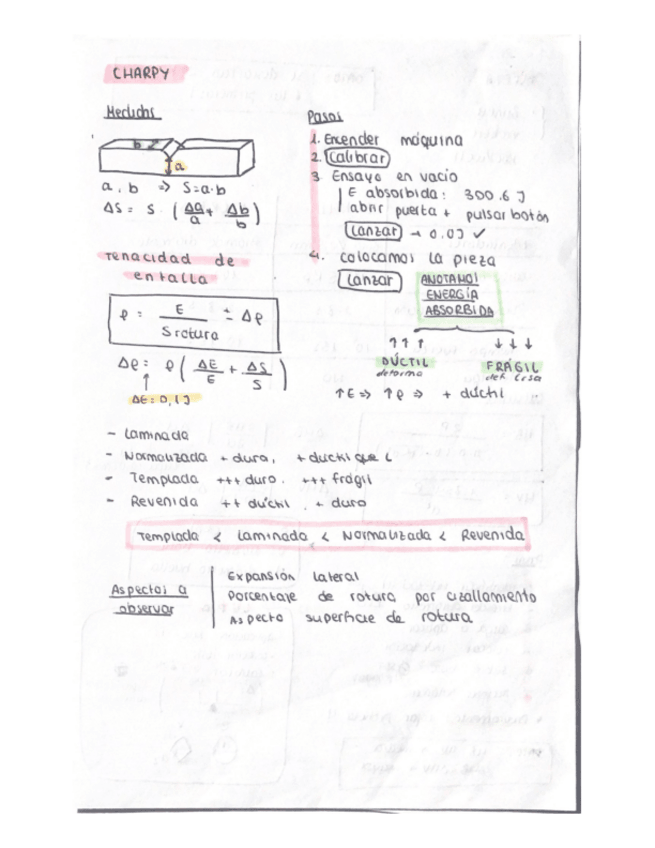 CHARPY
Medidas
b
a
a, b => S=a·b
ΔS = S · (Δa/a + Δb/b)
Tenacidad de
entalla
ρ = E / S rotura ± Δρ
Δρ = ρ (ΔE/E + ΔS/S)
↑
ΔE = 0,1 J
Pasos
1. Encender máquina
2. Calibrar
3. Ensayo en vacío
E absorbida: 300.6 J
abrir puerta + pulsar botón
Lanzar → 0.0J ✓
4. colocamos la pieza
Lanzar
ANOTAMOS
ENERGÍA
ABSORBIDA
↑↑↑ ↓↓↓
DÚCTIL FRÁGIL
deforma
↑E => ↑ρ => + dúctil
- Laminada
- Normalizada + dura, + ductil que L
- Templada +++ duro. +++ frágil
- Revenida ++ dúctil, + duro
Templada < Laminada < Normalizada < Revenida
Aspectos a
observar
Expansión lateral
Porcentaje de rotura por cizallamiento
Aspecto superficie de rotura